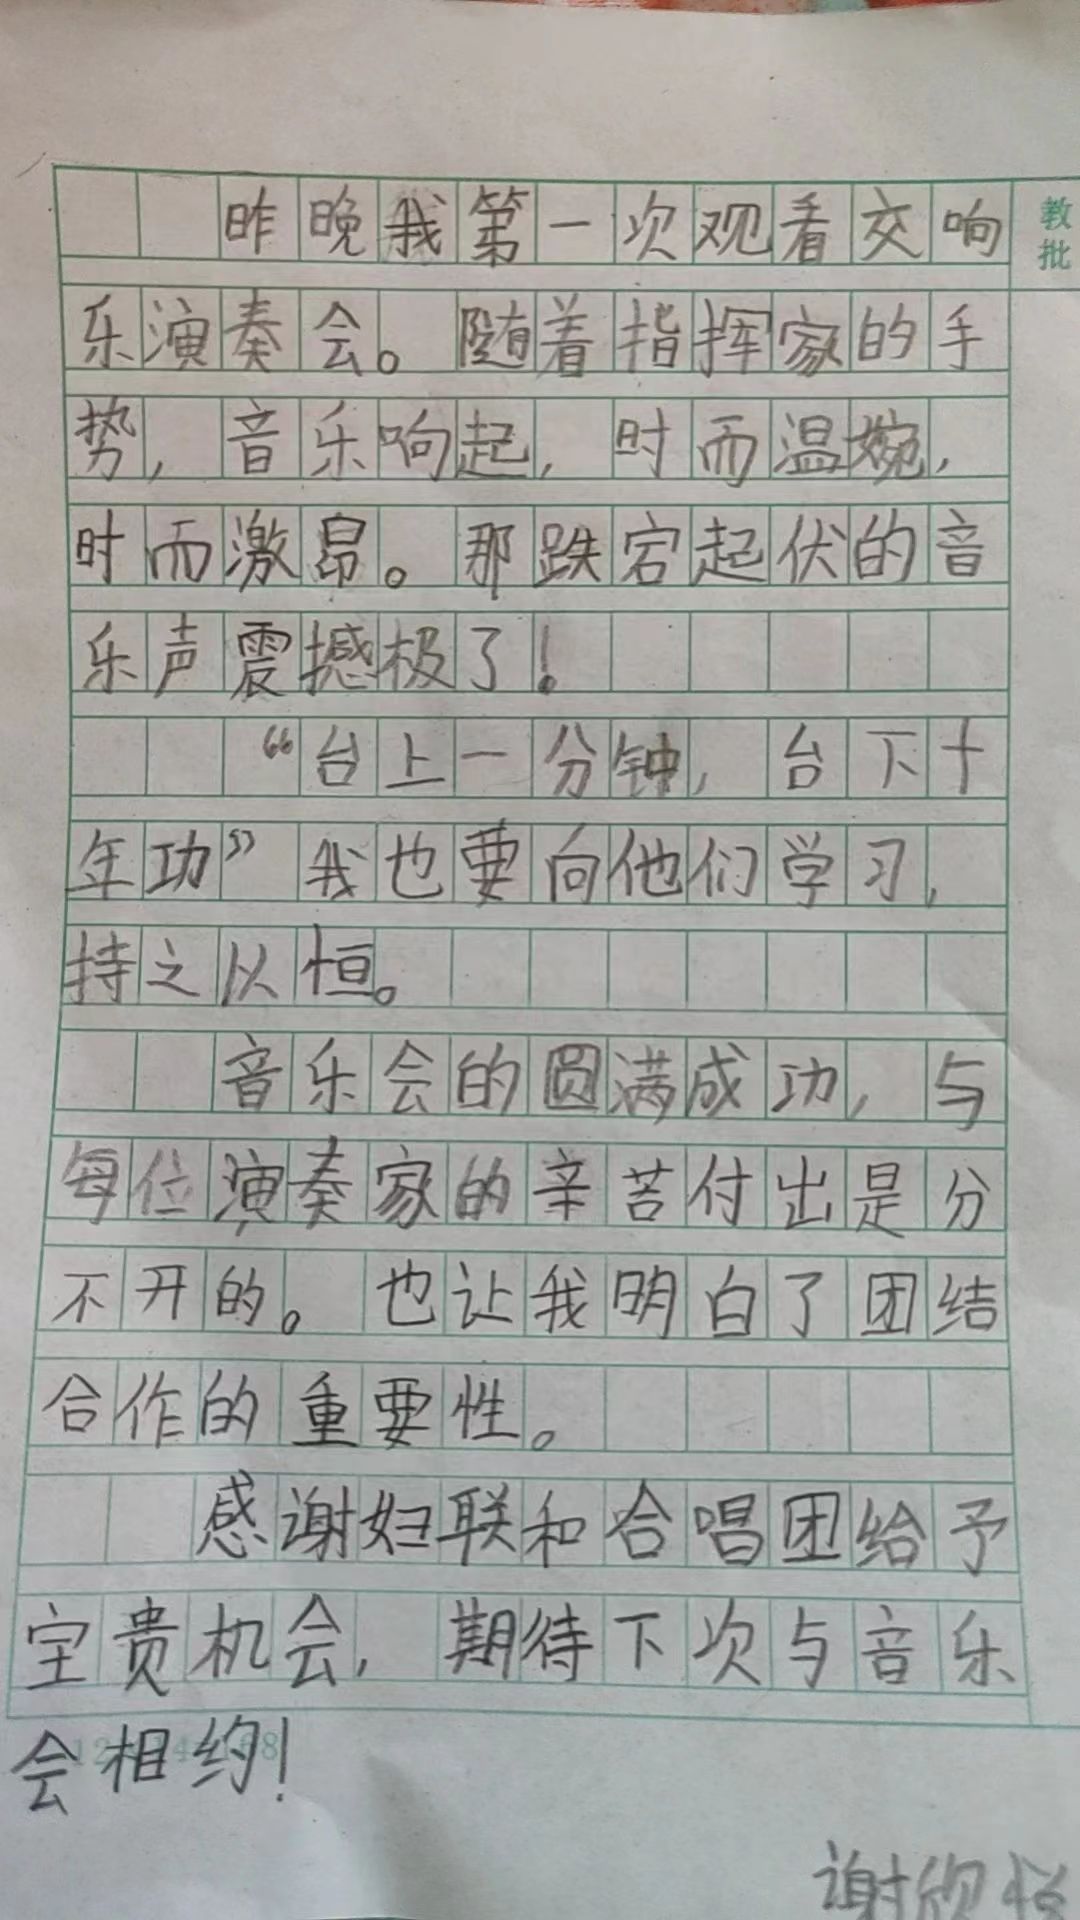 昨晚我第一次观看交响
乐演奏会。随着指挥家的手
势,音乐响起,时而温婉,
时而激昂。那跌宕起伏的音
乐声震撼极了!
“台上一分钟,台下十
年功”我也要向他们学习,
持之以恒。
音乐会的圆满成功,与
每位演奏家的辛苦付出是分
不开的。也让我明白了团结
合作的重要性。
感谢妇联和合唱团给予
宝贵机会,期待下次与音乐
会相约!
谢欣悦
教
批